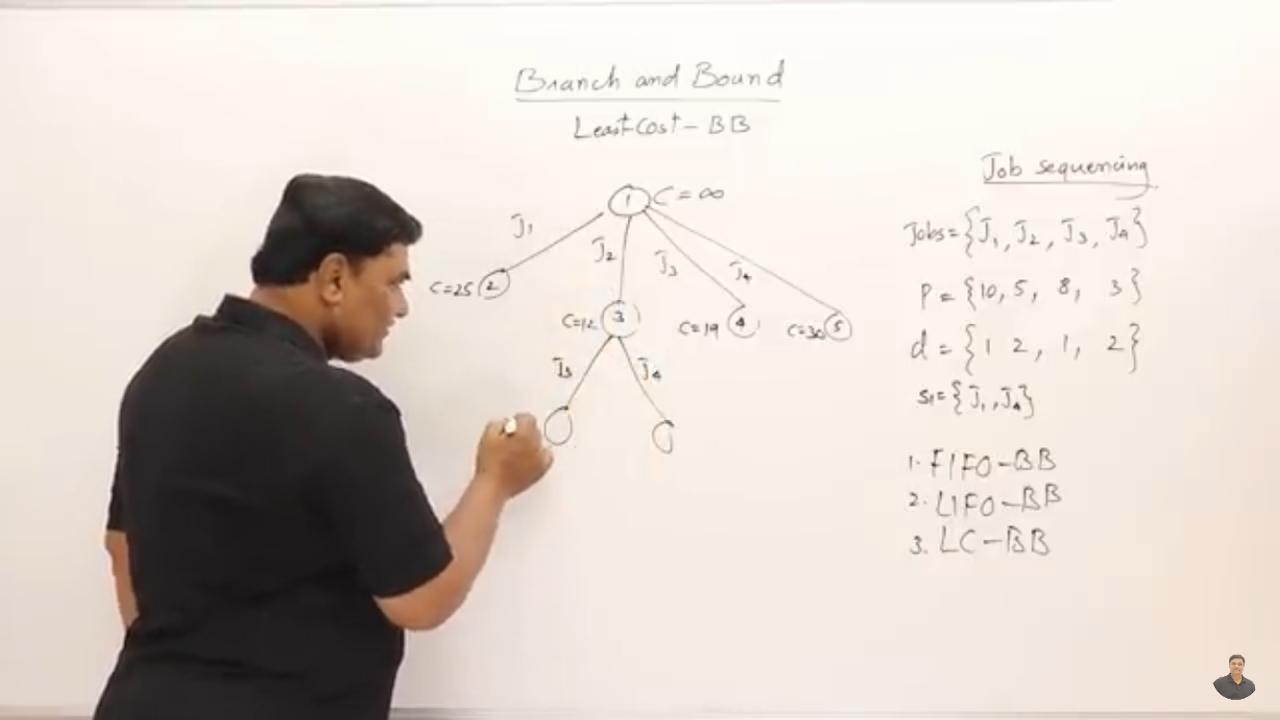 Branch and Bound
Least Cost - BB
1 C = ∞
J1 J2 J3 J4
C=25 2
C=12 3
C=19 4
C=30 5
J3 J4
Job sequencing
Jobs = {J1, J2, J3, J4}
P = {10, 5, 8, 3}
d = {1 2, 1, 2}
S1 = {J1, J4}
1. FIFO-BB
2. LIFO-BB
3. LC-BB